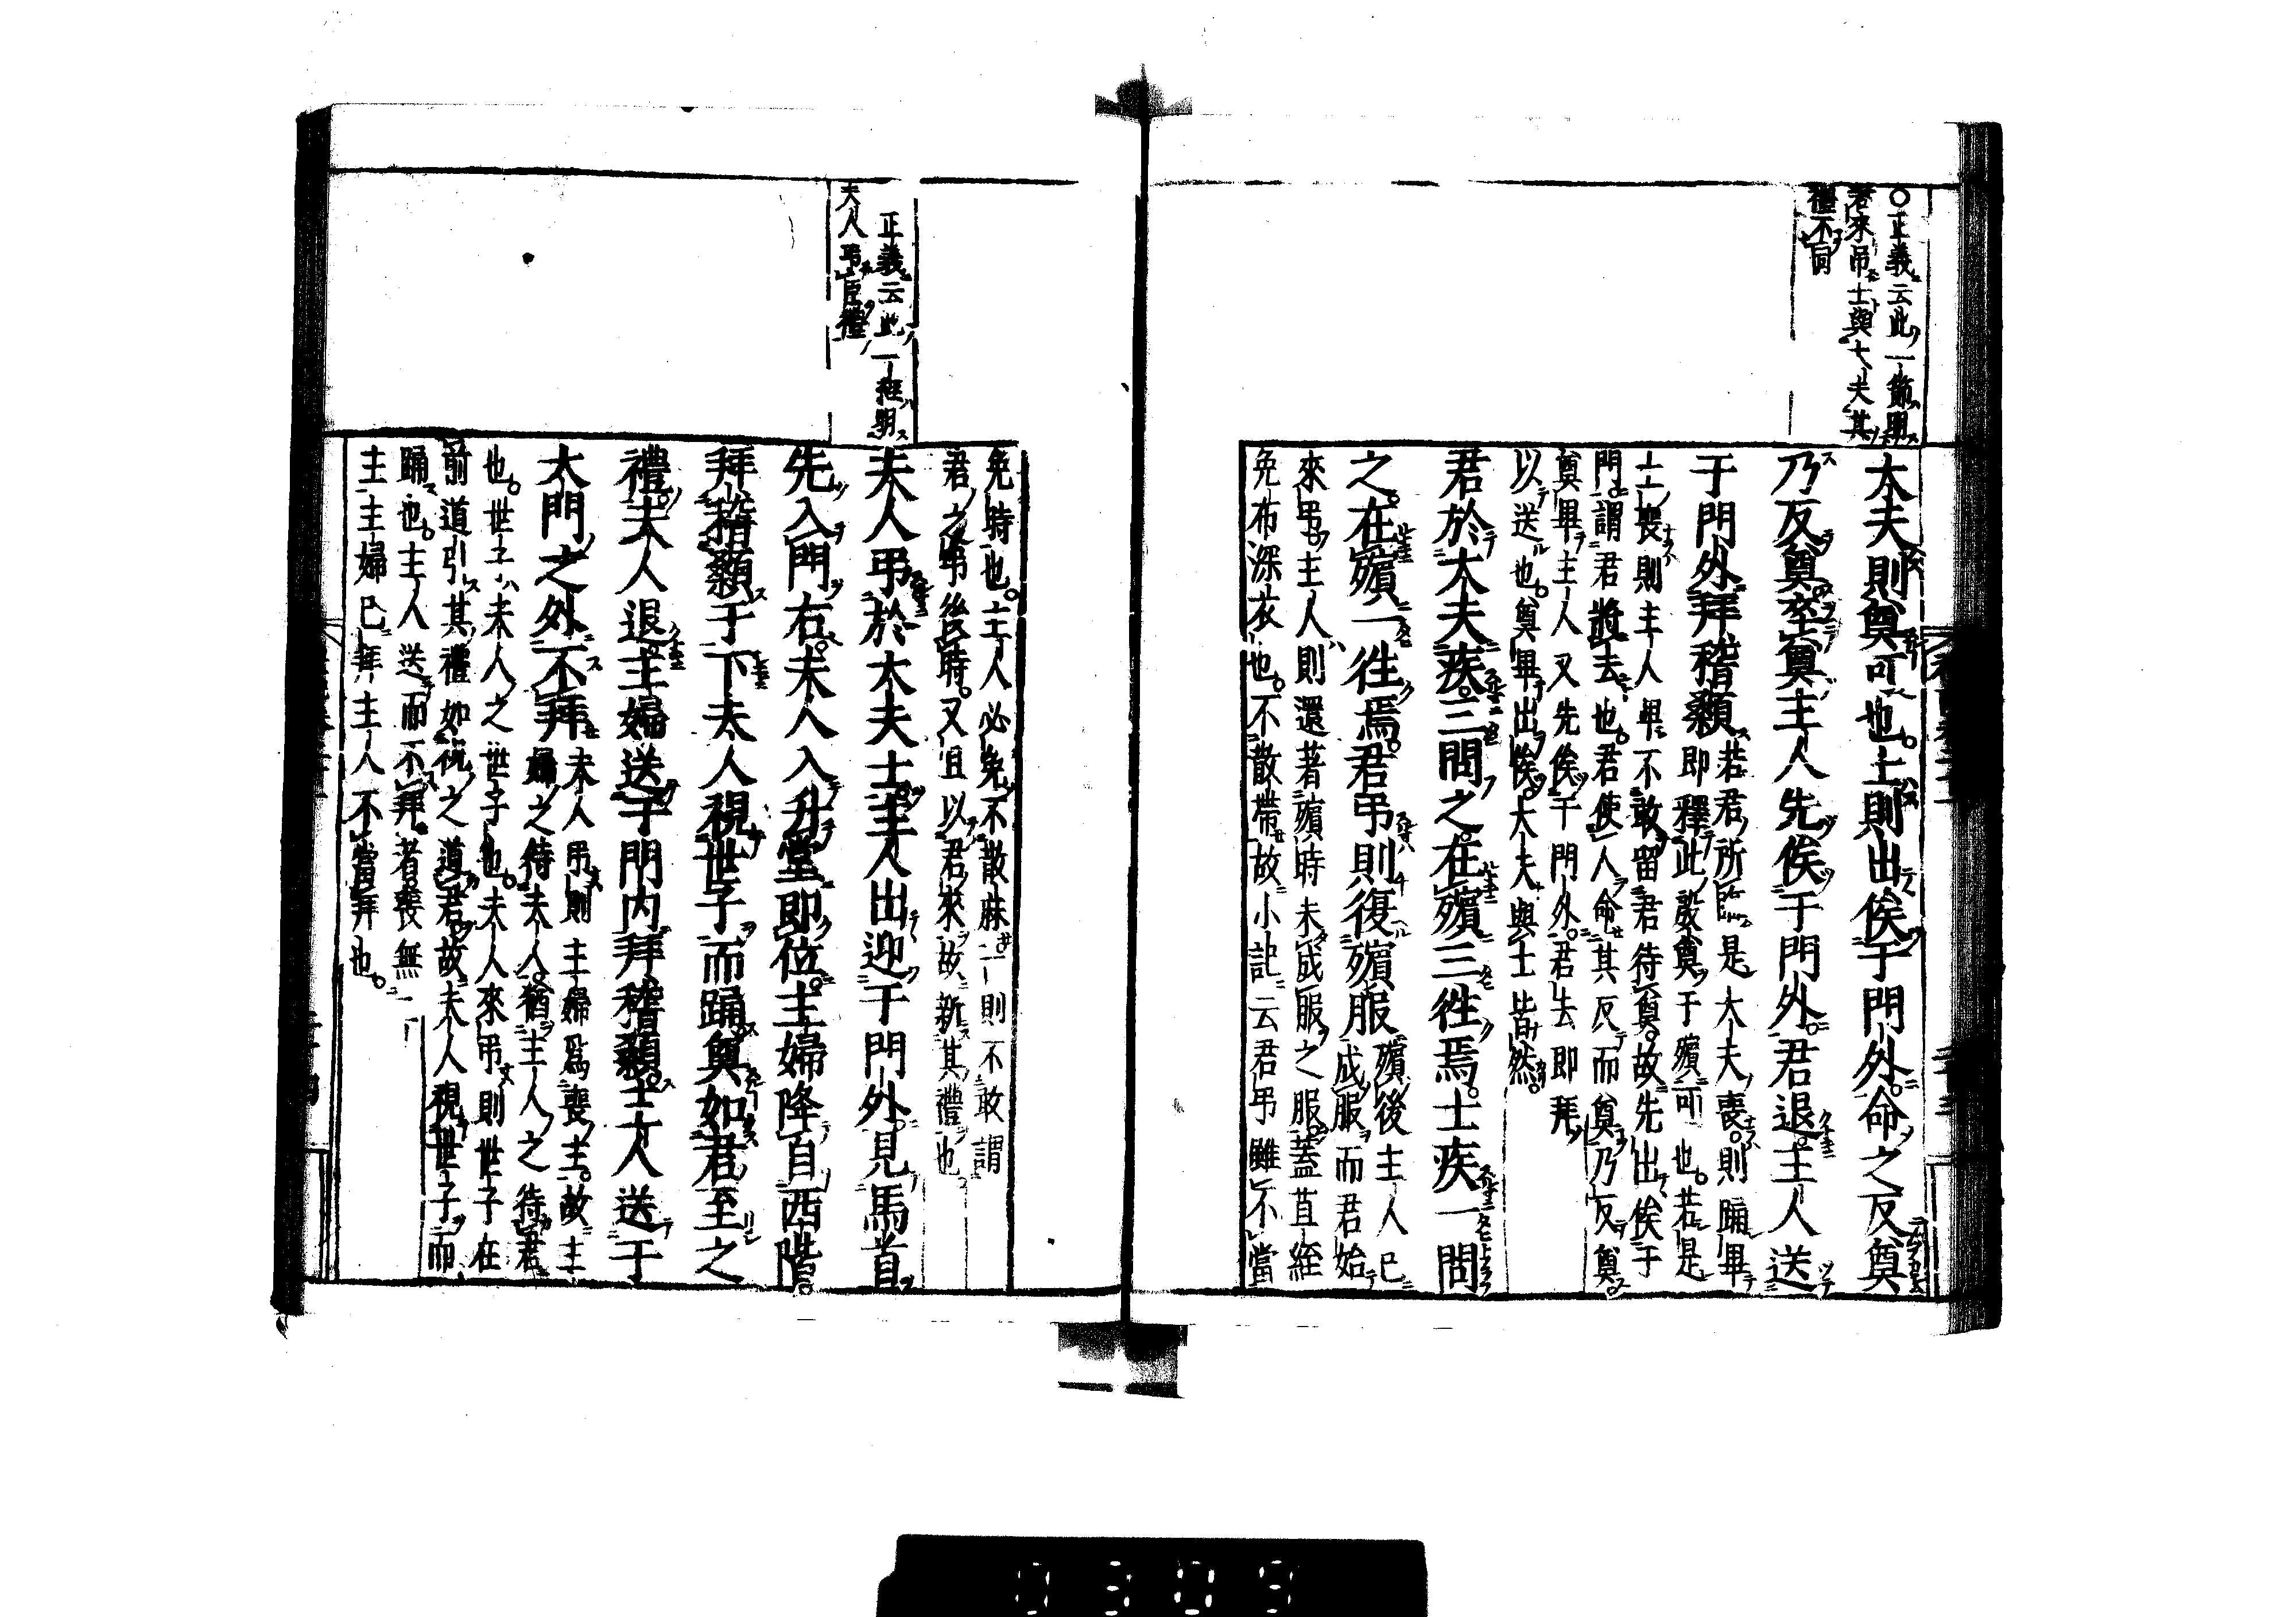 ○正義云此一節明
君來吊士與大夫其
禮不同
大夫則奠可也。士則出俟于門外。命之反奠
乃反奠。卒奠。主人先俟于門外。君退。主人送
于門外。拜稽顙
若君所臨是大夫喪。則踊畢
即釋此殷奠于殯可也。若是
士喪則主人畢不敢留君待奠。故先出俟于
門。謂君將去也。君使人命其反而奠。乃反奠。
奠畢主人又先俟于門外。君去即拜
以送也。奠畢出俟。大夫與士皆然。
君於大夫疾。三問之。在殯三徃焉。士疾一問
之。在殯一徃焉。君吊則復殯服
殯後主人已
成服而君始
來吊。主人則還著殯時未成服之服。蓋苴絰
免布深衣也。不散帶故小記云君吊雖不當
免時也。主人必免不散麻。一則不敢謂
君之吊後時。又且以君來故新其禮也
正義云此一經明
夫人吊臣禮
夫人吊於大夫士。主人出迎于門外。見馬首
先入門右。夫人入升堂即位。主婦降自西階。
拜稽顙于下。夫人視世子而踊。奠如君至之
禮。夫人退。主婦送于門內拜稽顙。主人送于
大門之外不拜
夫人吊則主婦爲喪主。故主
婦之待夫人。猶主人之待君
也。世子夫人之世子也。夫人來吊則世子在
前道引其禮如祝之道君。故夫人視世子而
踊也。主人送而不拜。者喪無二
主主婦已拜主人不當拜也。
0309